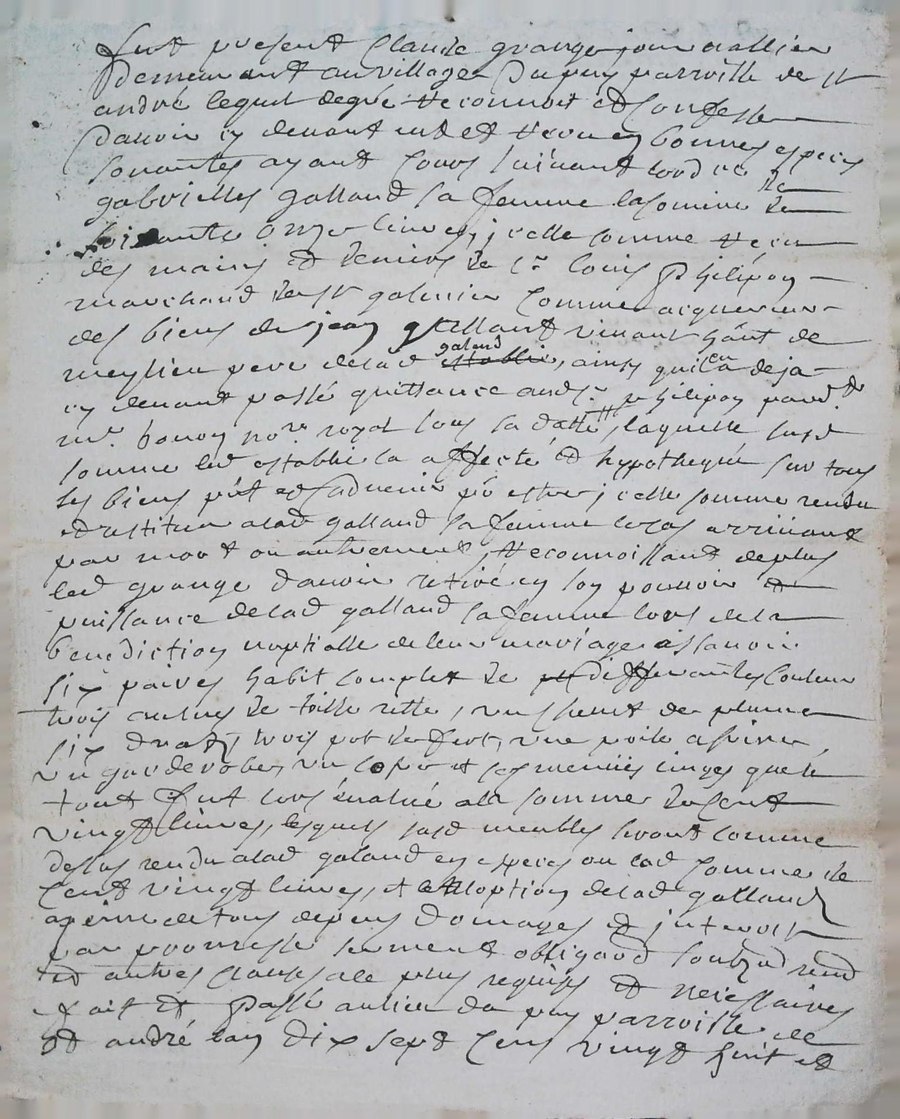 fut present Claude grange journallier
demeurant au village Dupuy parroisse de st
andré lequel degré reconnoit et Confesse
Davoir cy devant eut et receu en bonnes espèces
sonantes ayant Cours suivant lord ce de
gabrielles galland sa femme la somme de
soixante onze livres, jcelle somme receu
des mains et deniers de sr louis philipon
marchand de st galmier Comme acquereur
des biens de jean galland vivant hant de
meylieu pere de lad galand, ainsy quil en a deja
cy devant passé quittance aud sr philipon pard
me bouon nore royal sous sa datte, laquelle susd
somme led estably la affecté et hypothequé sur tous
ses biens pnt et advenir po estre jcelle somme rendu
et restituer a lad galland sa femme le cas arrivant
par mort ou autrement, reconnoissant de plus
led grange davoir retiré en son pouvoir et
puissance de lad galland sa femme lors de la
benediction nuptialle de leur mariage assavoir
six paires habit complet de differantes Couleur
trois aulnes de toille rette, un cheuet de plume
six draps, trois pot de fert, une poile a frire,
un garderobe, un et ses menües linges que le
tout fut lors évalué a la somme de Cent
vingt livres, lesquels susd meubles seront comme
dessus rendu a lad galand en especes ou lad somme de
Cent vingt livres, et a loption de lad galland
a peine de tous depens Domages et jnterest
par promesse serment obligaon soubz rend
et autres clauses a ce plus requises et necessaires
fait et passé au lieu du puy parroisse de
st andré lan Dix sept Cens vingt huit et